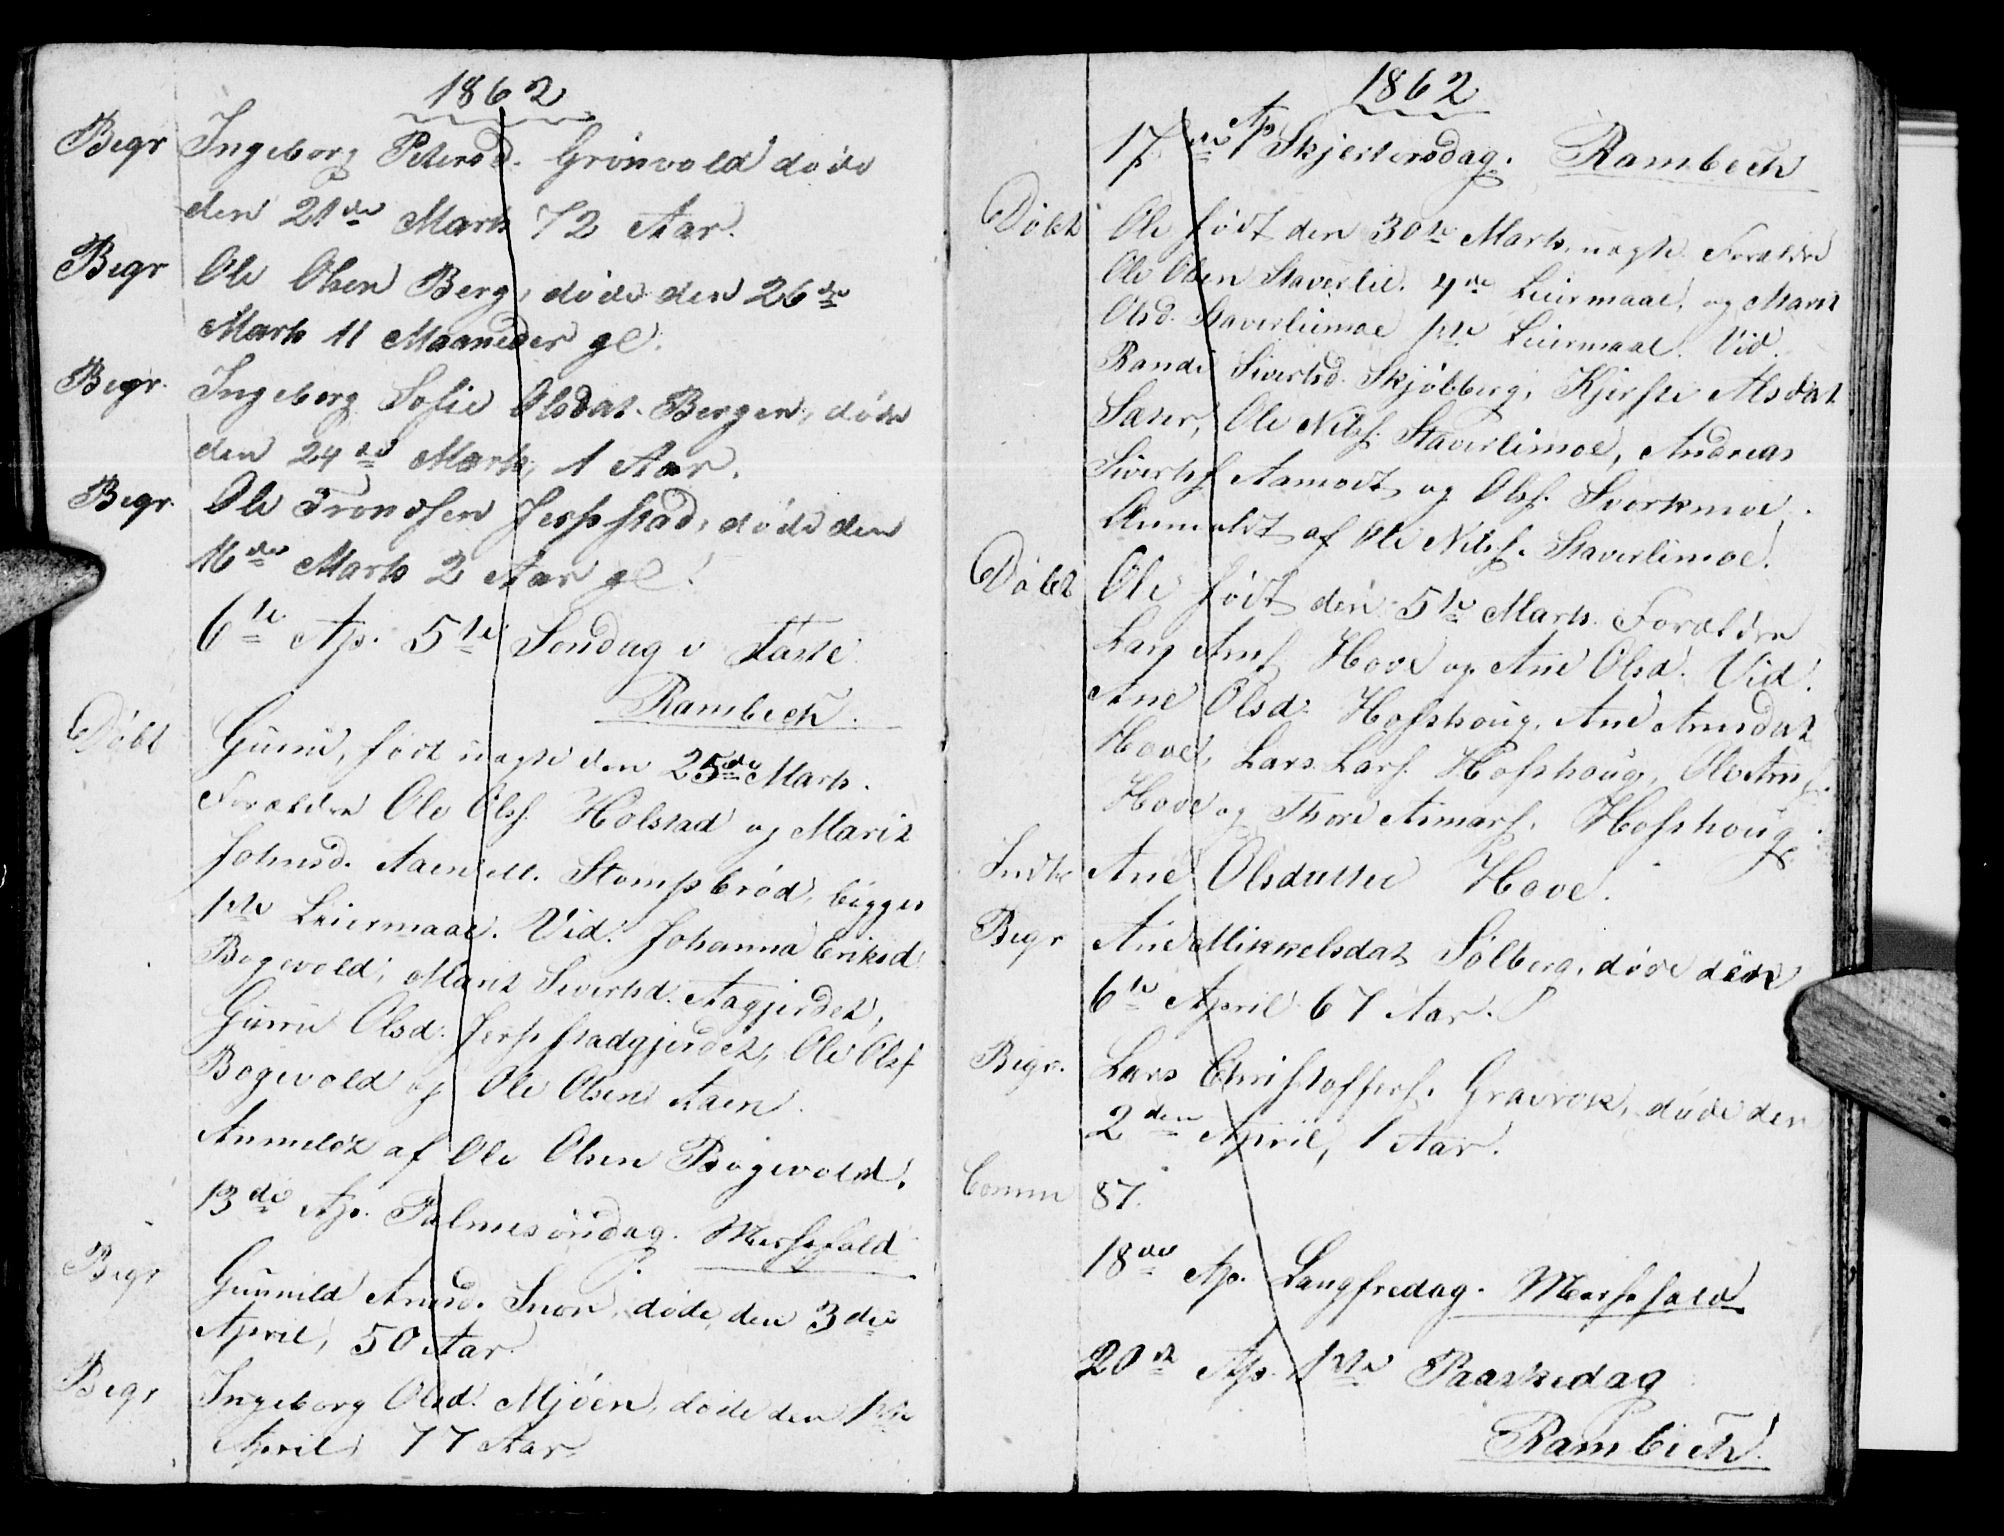 1862
Begr Ingeborg Petersd. Grönvold döde
den 21de Marts 72 Aar.
Begr Ole Olsen Berg, döde den 26de
Marts 11 Maaneder gl.
Begr. Ingeborg Sofie Olsdat. Bergen, döde
den 24de Marts, 1 Aar.
Begr. Ole Trondsen Jerpstad, döde den
16de Marts 2 Aar gl.
6te Ap. 5te Söndag i Faste
Rambech.
Döbt Guru, födt uægte den 25de Marts.
Forældre Ole Olss. Holstad og Marit
Johnsd. Aaen Stompbröd, begges
1ste Leiermaal. Vid. Johanna Eriksd
Bögevold, Marit Sivertsd. Aagjerdet,
Guru Olsd. Jerpstadgjerdet, Ole Olss
Bögevold og Ole Olsen Aaen.
Anmeldt af Ole Olsen Bögevold.
13de Ap. Palmesöndag.
Begr Gunnild Arnsd. Snoen, döde den 3die
April, 50 Aar.
Begr Ingeborg Olsd. Mjöen, döde den 1ste
April, 77 Aar
1862
17de Ap Skjertorsdag. Rambech
Döbt Ole födt den 30te Marts, uægte. Forældre
Ole Olsen Staverlie. 4de Leiermaal, og Marit
Olsd. Staverliemoe 1ste Leiermaal. Vid.
Randi Sivertsd. Skjöbberg, Kjersti Alsdat
Sæter, Ole Nilss. Staverlimoe, Andreas
Sivertss Aamodt og Olss. Sverkmoe,
Anmeldt af Ole Nilss. Staverlimoe.
Döbt Ole födt den 5te Marts. Forældre
Lars Arnss Hove og Ane Olsd. Vid.
Ane Olsd. Hofshoug, Ane Arnsdat
Hove, Lars Larss. Hofshoug, Ole Arnss.
Hove og Thore Hofshoug
Indtr Ane Olsdatter Hove.
Begr Ane Mikkelsdat Solberg, döde den
6te April 67 Aar.
Begr. Lars Christoffers. Gravrok, döde den
2den April, 1 Aar.
Comm 87.
18de Ap. Langfredag.
20de Ap. 1ste Paaskedag
Rambech.